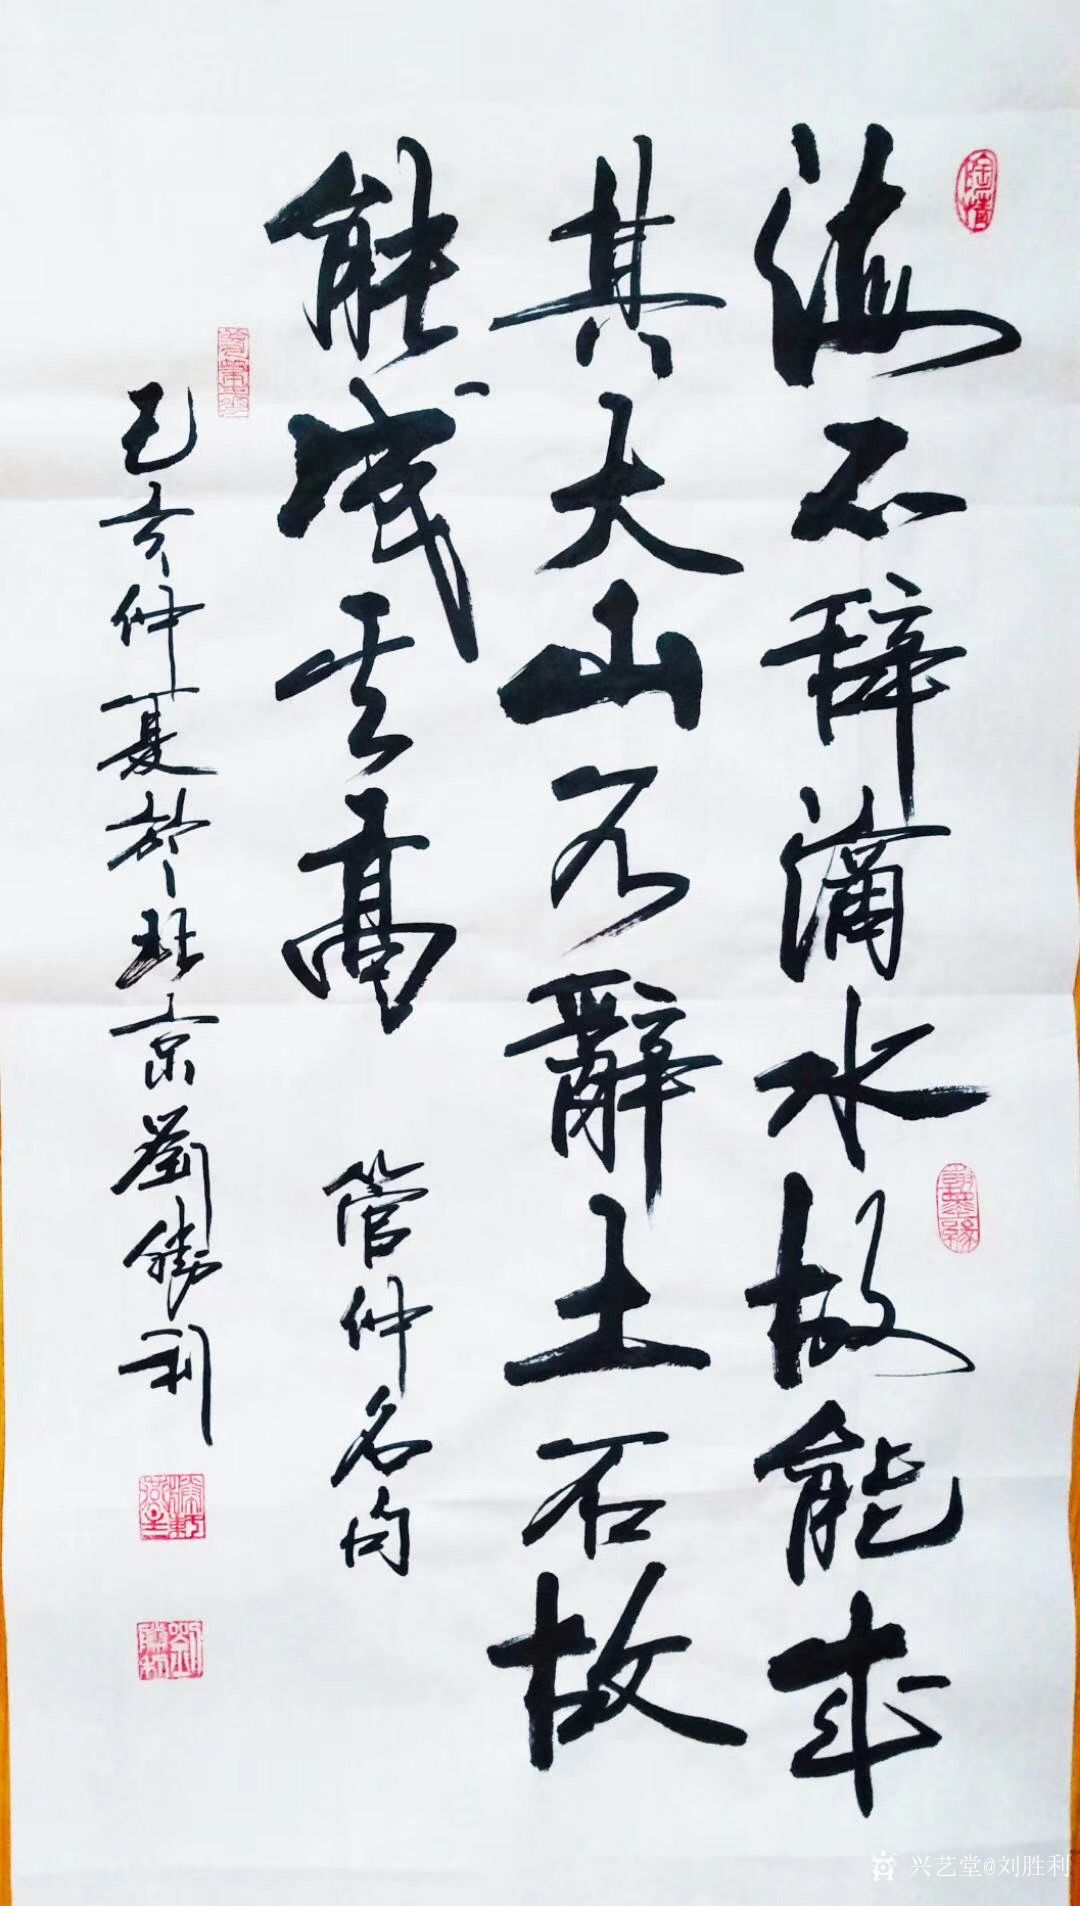 海不辞滴水故能成
其大山不辭土石故
能成其高 管仲名句
己亥仲夏於北京劉勝利
兴艺堂@刘胜利